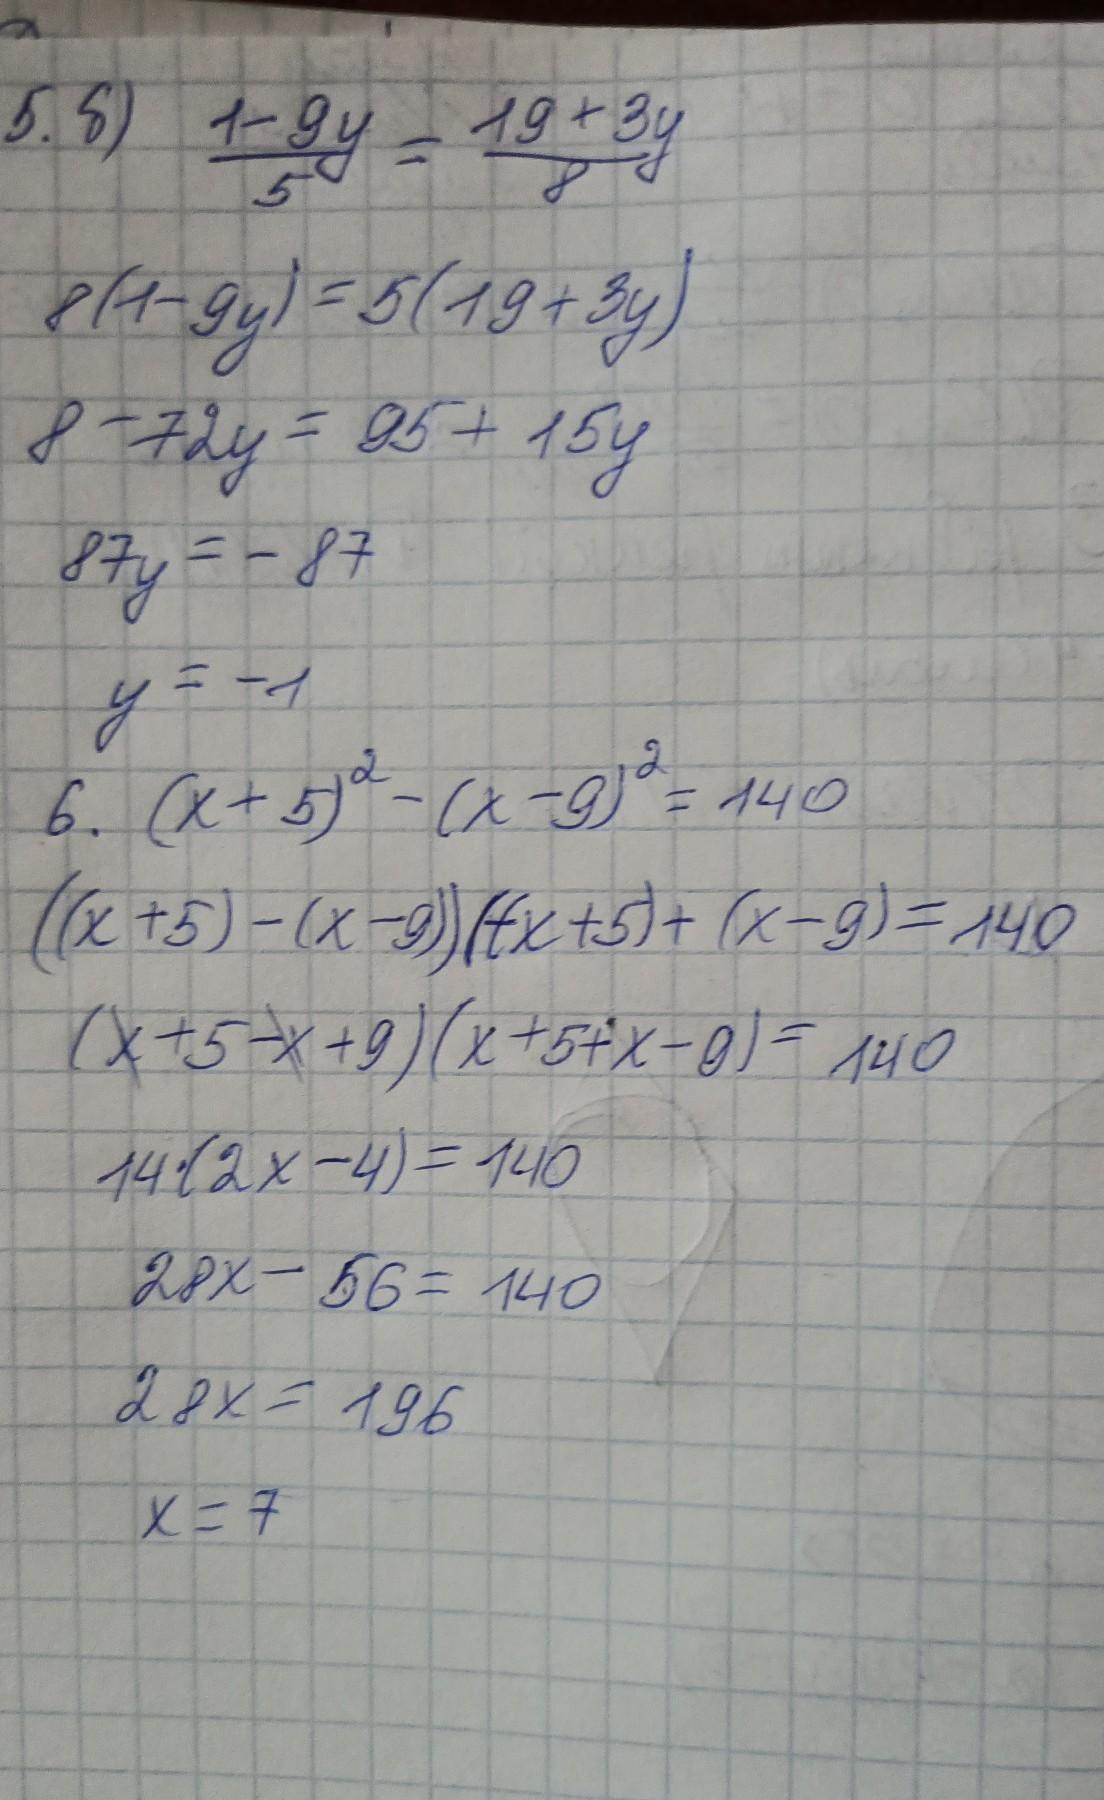 5. б) (1-9y)/5 = (19+3y)/8
8(1-9y)=5(19+3y)
8-72y=95+15y
87y=-87
y=-1
6. (x+5)²-(x-9)²=140
((x+5)-(x-9))((x+5)+(x-9)=140
(x+5-x+9)(x+5+x-9)=140
14·(2x-4)=140
28x-56=140
28x=196
x=7